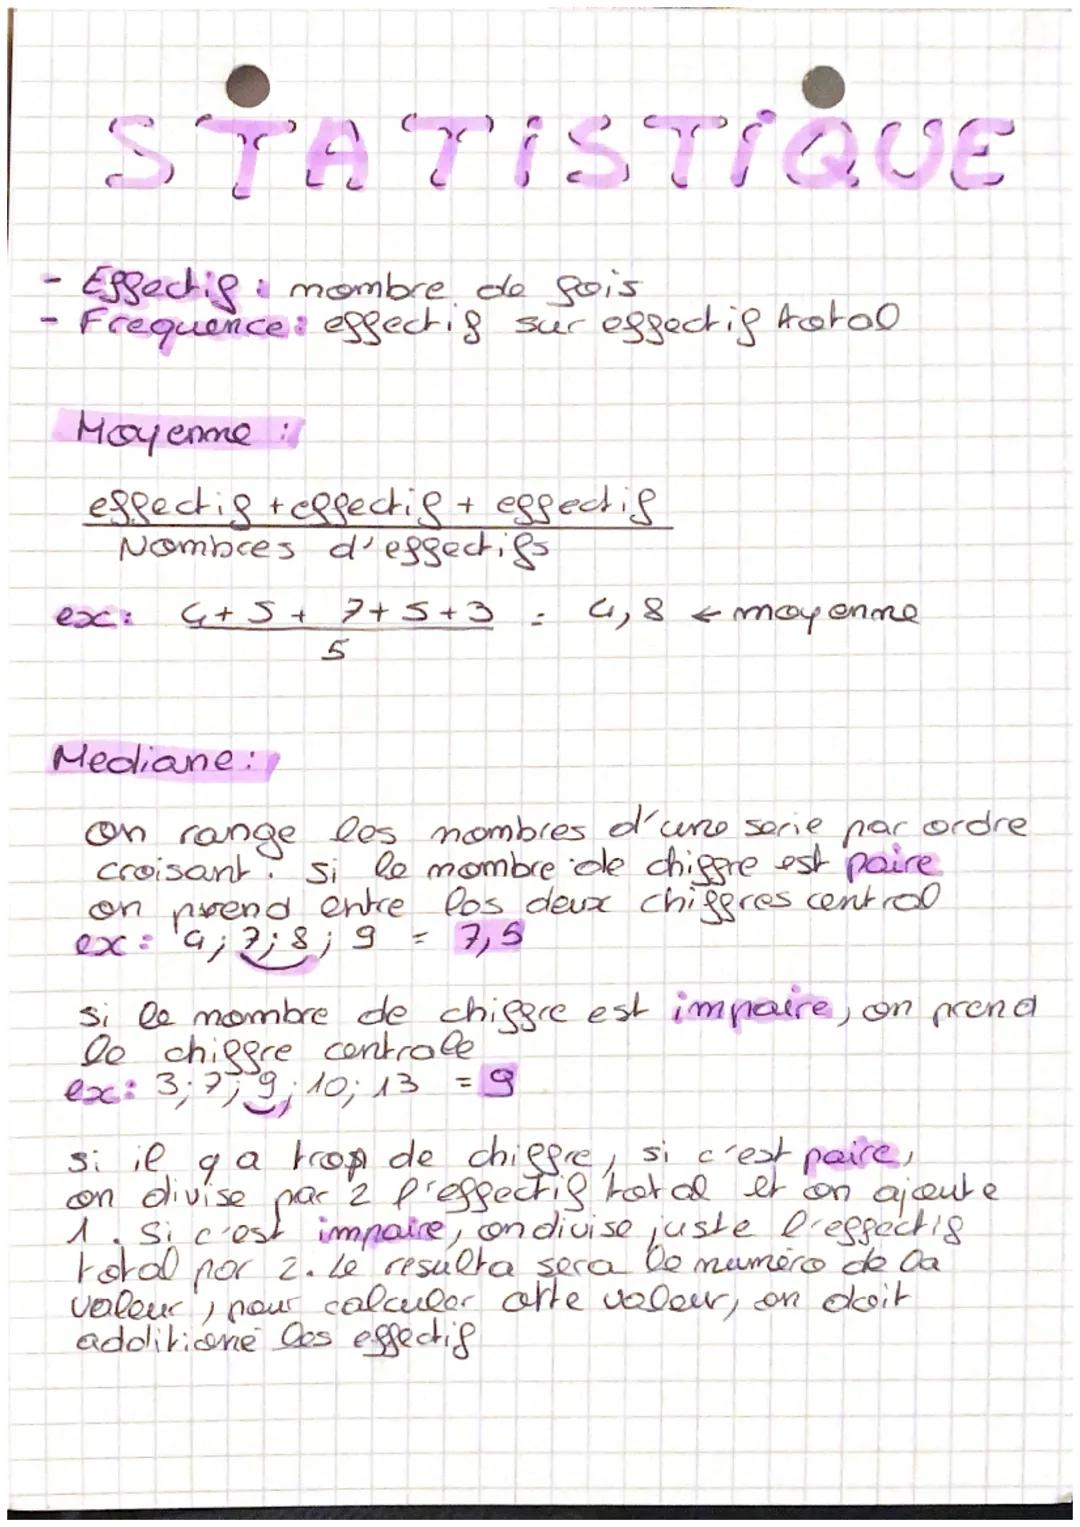 STATISTIQUE
- Effectif : nombre de fois
- Frequence : effectif sur effectif total
Moyenne :
effectif + effectif + effectif
Nombres d'effectifs
ex : 4 + 5 + 7 + 5 + 3 = 4,8 ← moyenne
5
Mediane :
on range les nombres d'une serie par ordre
croisant. si le nombre de chiffre est paire
on prend entre les deux chiffres central
ex : 4 ; 7 ; 8 ; 9 = 7,5
si le nombre de chiffre est impaire, on prend
le chiffre centrale
ex : 3 ; 7 ; 9 ; 10 ; 13 = 9
si il y a trop de chiffre, si c'est paire,
on divise par 2 l'effectif total et on ajoute
1. Si c'est impaire, on divise juste l'effectif
total par 2. Le resulta sera le numéro de la
valeur, pour calculer cette valeur, on doit
additioné les effectif